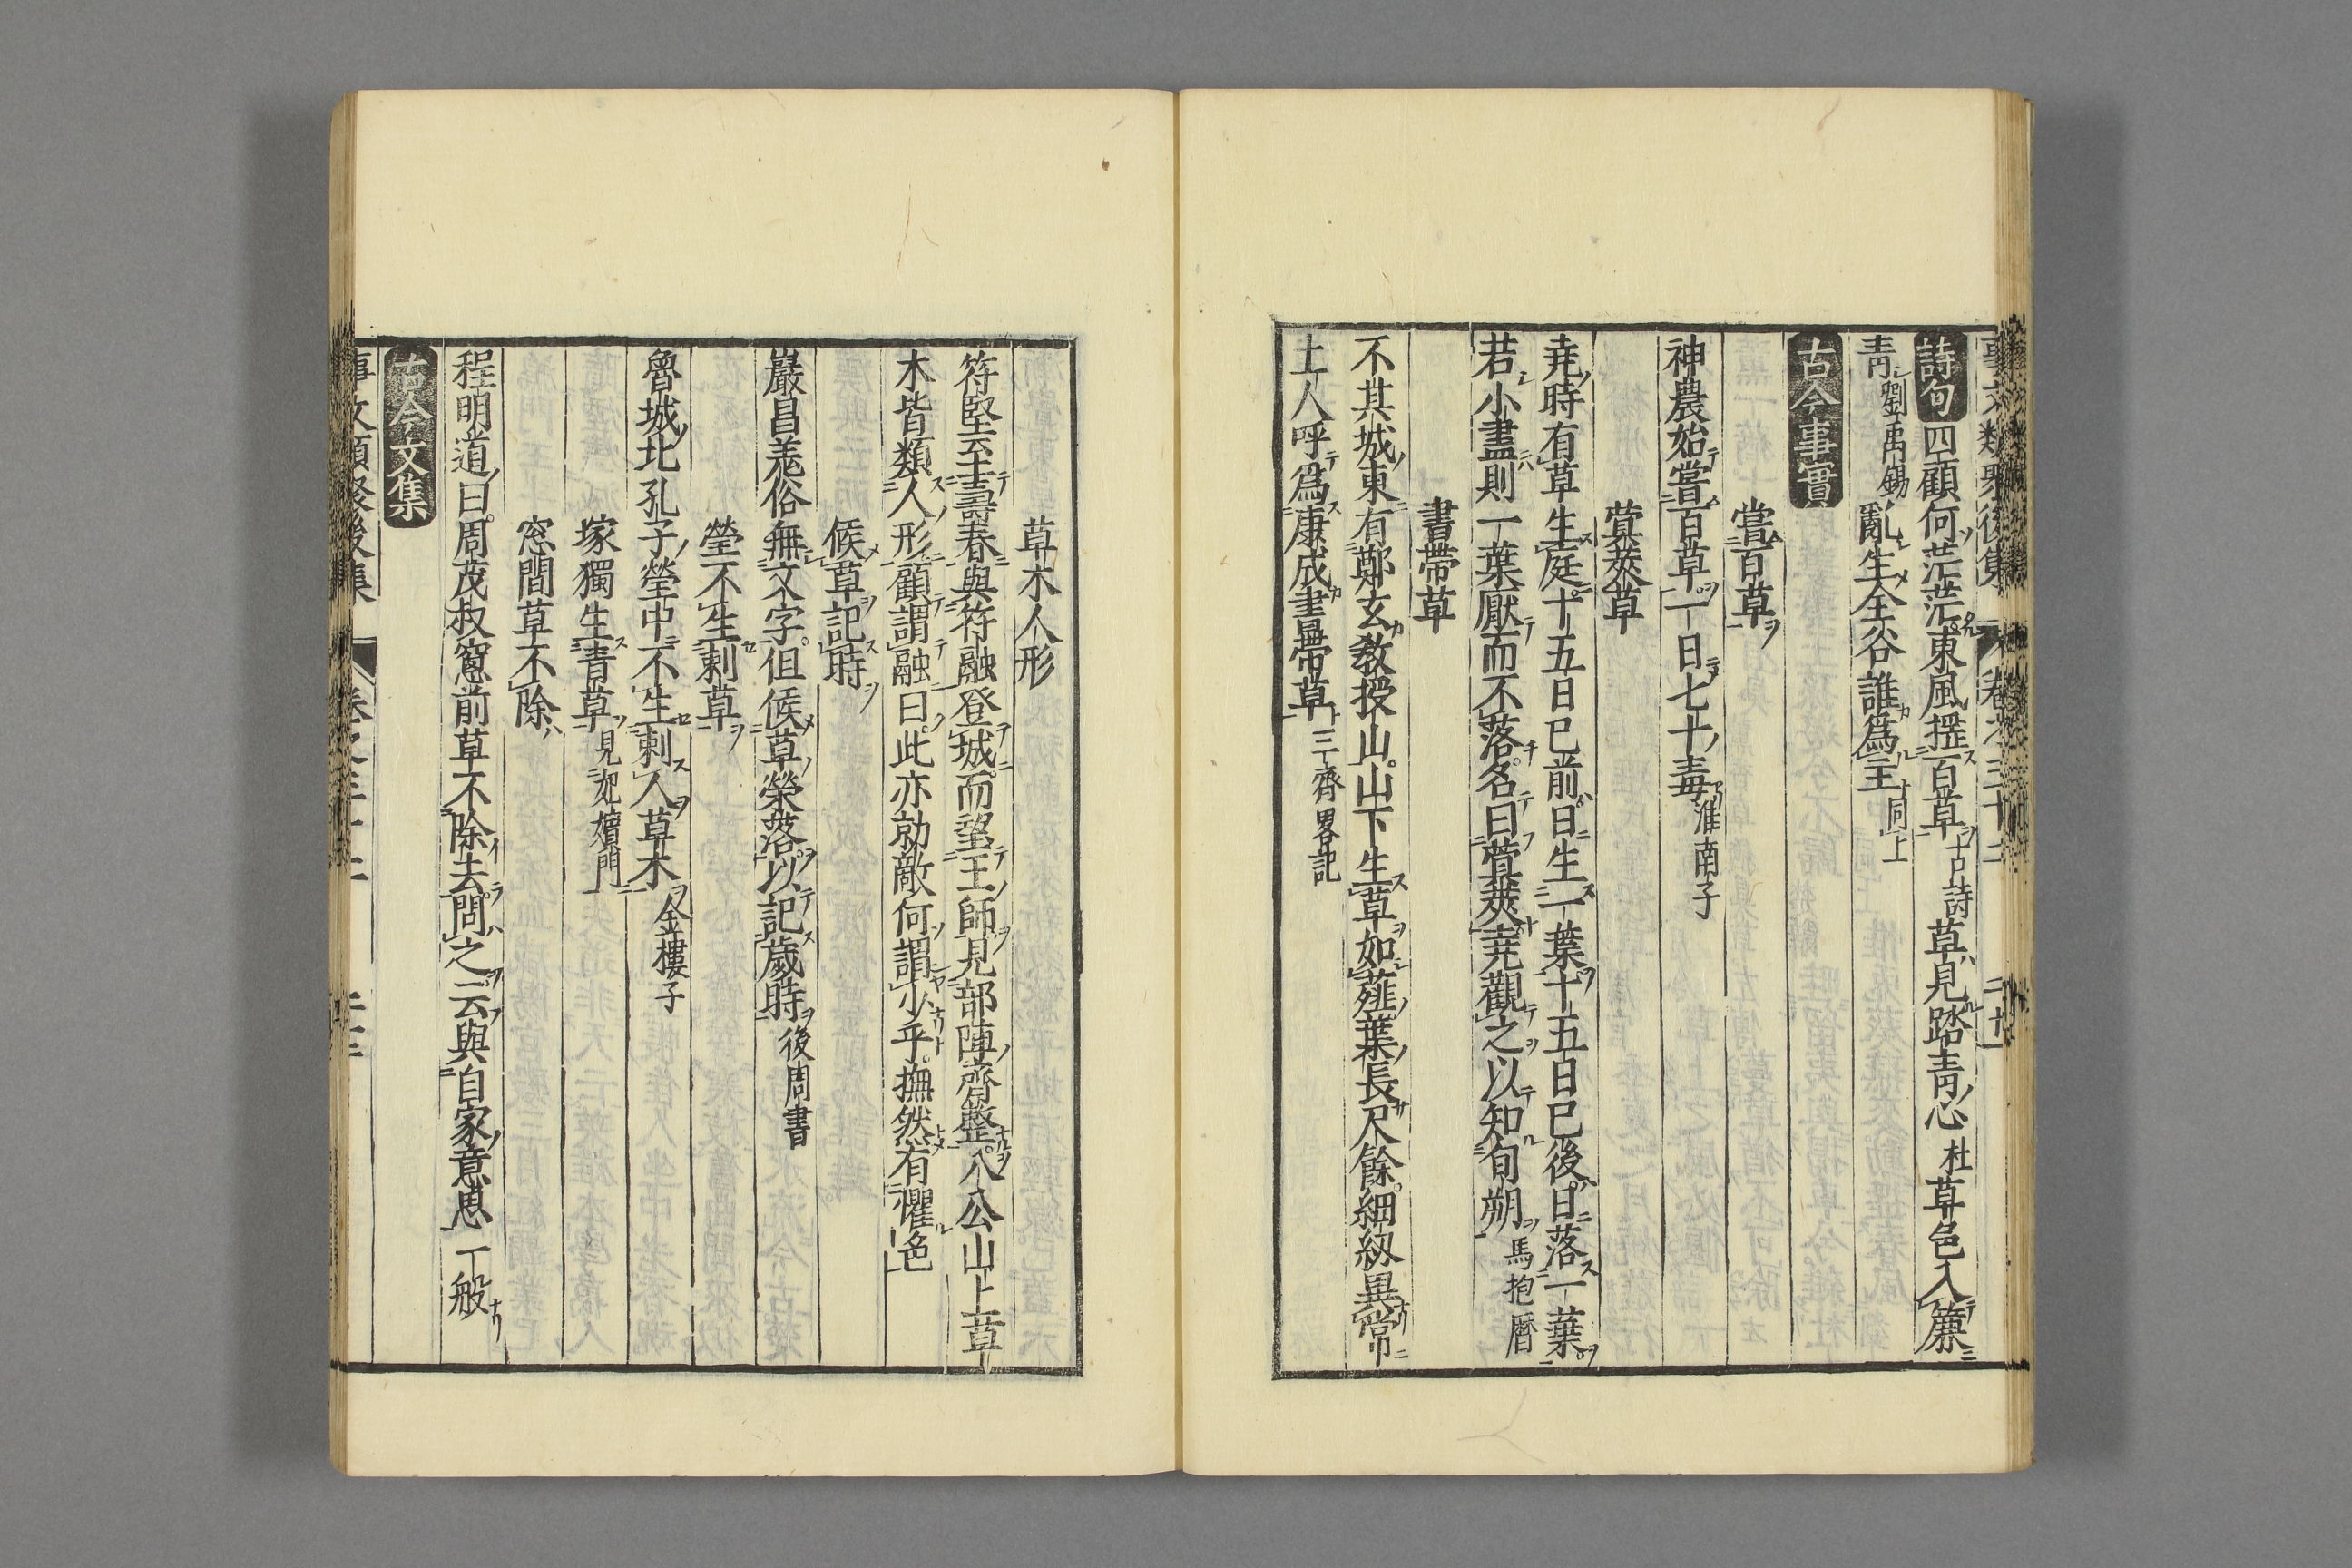 事文類聚後集 卷之三十二 二十一
詩句 四顧何茫茫東風搖百草 古詩 草見踏靑心 杜 草色入簾
靑 劉禹錫 亂生全谷誰爲主 同上
古今事實
嘗百草
神農始嘗百草一日七十毒 淮南子
蓂莢草
尭時有草生庭十五日已前日生一葉十五日已後日落一葉
若小盡則一葉厭而不落名曰蓂莢尭觀之以知旬朔 馬抱曆
書帶草
不其城東有鄭玄教授山山下生草如薤葉長尺餘細紉異常
土人呼爲康成書帶草 三齊畧記
草木人形
符堅云壽春與符融登城而望王師見部陣齊整八公山上草
木皆類人形顧謂融曰此亦勍敵何謂少乎撫然有懼色
候草記時
巖昌羗俗無文字但候草榮落以記歲時 後周書
塋不生刺草
魯城北孔子塋中不生刺人草木 金樓子
塚獨生青草 見妃嬪門
窓間草不除
程明道曰周茂叔窻前草不除去問之云與自家意思一般
古今文集
事文類聚後集 卷之三十二